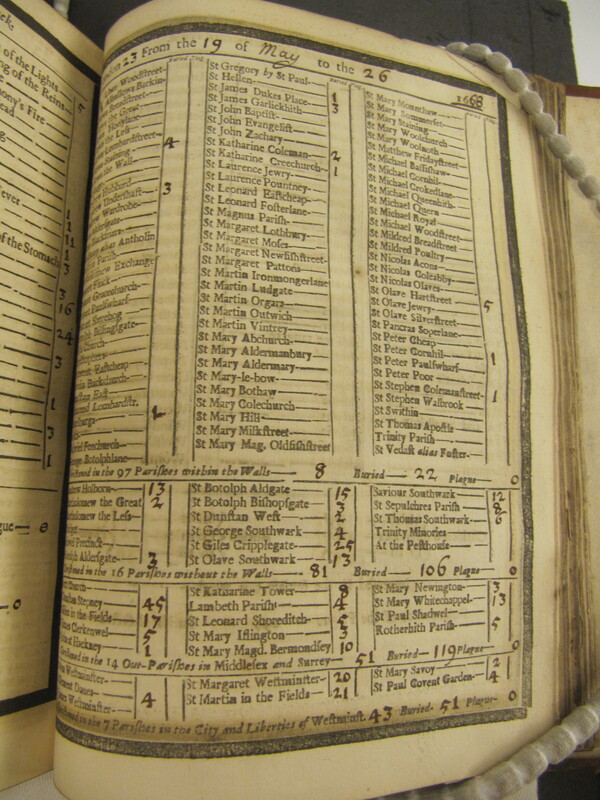 of the Lights
ng of the Reins
5
ony's Fire
ead
ever
1
11
1
of the Stomach
13
3
16
24
3
1
3
1
gue— 0
—0
23 From the 19 of May to the 26 1668
Woodstreet
Barkin
Breadstreet
Lombardstreet 4
Wall
Undershaft 3
Wardrobe
alias Antholin
Parish
Exchange
Gracechurch
Paulswharf
Billingsgate
Eastcheap
Backchurch
Lombardstr.
Fenchurch
Botolphlane
St Gregory by St Paul
St Hellen
St James Dukes Place 1
St James Garlickhith 3
St John Baptist
St John Evangelist
St John Zachary
St Katharine Coleman 2
St Katharine Creechurch 1
St Laurence Jewry
St Laurence Pountney
St Leonard Eastcheap
St Leonard Fosterlane
St Magnus Parish
St Margaret Lothbury
St Margaret Moses
St Margaret Newfishstreet
St Margaret Pattons
St Martin Ironmongerlane
St Martin Ludgate
St Martin Orgars
St Martin Outwich
St Martin Vintrey
St Mary Abchurch
St Mary Aldermanbury
St Mary Aldermary
St Mary-le-bow
St Mary Bothaw
St Mary Colechurch
St Mary Hill
St Mary Milkstreet
St Mary Mag. Oldfishstreet
St Mary Mounthaw
St Mary Sommerset
St Mary Staining
St Mary Woolchurch
St Mary Woolnoth
St Matthew Fridaystreet
St Michael Bassishaw
St Michael Cornhil
St Michael Crokedlane
St Michael Queenhith
St Michael Quern
St Michael Royal
St Michael Woodstreet
St Mildred Breadstreet
St Mildred Poultry
St Nicolas Acons
St Nicolas Coleabby
St Nicolas Olaves
St Olave Hartstreet
St Olave Jewry 5
St Olave Silverstreet
St Pancras Soperlane
St Peter Cheap
St Peter Cornhil 1
St Peter Paulswharf
St Peter Poor
St Stephen Colemanstreet 1
St Stephen Walbrook
St Swithin
St Thomas Apostle
Trinity Parish
St Vedast alias Foster
in the 97 Parishes within the Walls— 8 Buried— 22 Plague 0
Holborn 13
the Great 2
the Less
Precinct
Aldersgate 3
St Botolph Aldgate 15
St Botolph Bishopsgate 3
St Dunstan West 2
St George Southwark 4
St Giles Cripplegate 25
St Olave Southwark 13
Saviour Southwark 12
St Sepulchres Parish 8
St Thomas Southwark 6
Trinity Minories
At the Pesthouse
in the 16 Parishes without the Walls— 81 Buried— 106 Plague— 0
Stepney 45
in the Fields 17
Clerkenwel 5
at Hackney 1
St Katharine Tower 8
Lambeth Parish 4
St Leonard Shoreditch 5
St Mary Islington 3
St Mary Magd. Bermondsey 10
St Mary Newington 3
St Mary Whitechappel 13
St Paul Shadwel
Rotherhith Parish 5
in the 14 Out-Parishes in Middlesex and Surrey— 51 Buried— 119 Plague— 0
Westminster
Danes
Westminster 4
St Margaret Westminster 20
St Martin in the Fields 21
St Mary Savoy 2
St Paul Covent Garden 4
in the 7 Parishes in the City and Liberties of Westminst. 43 Buried— 51 Plague— 0